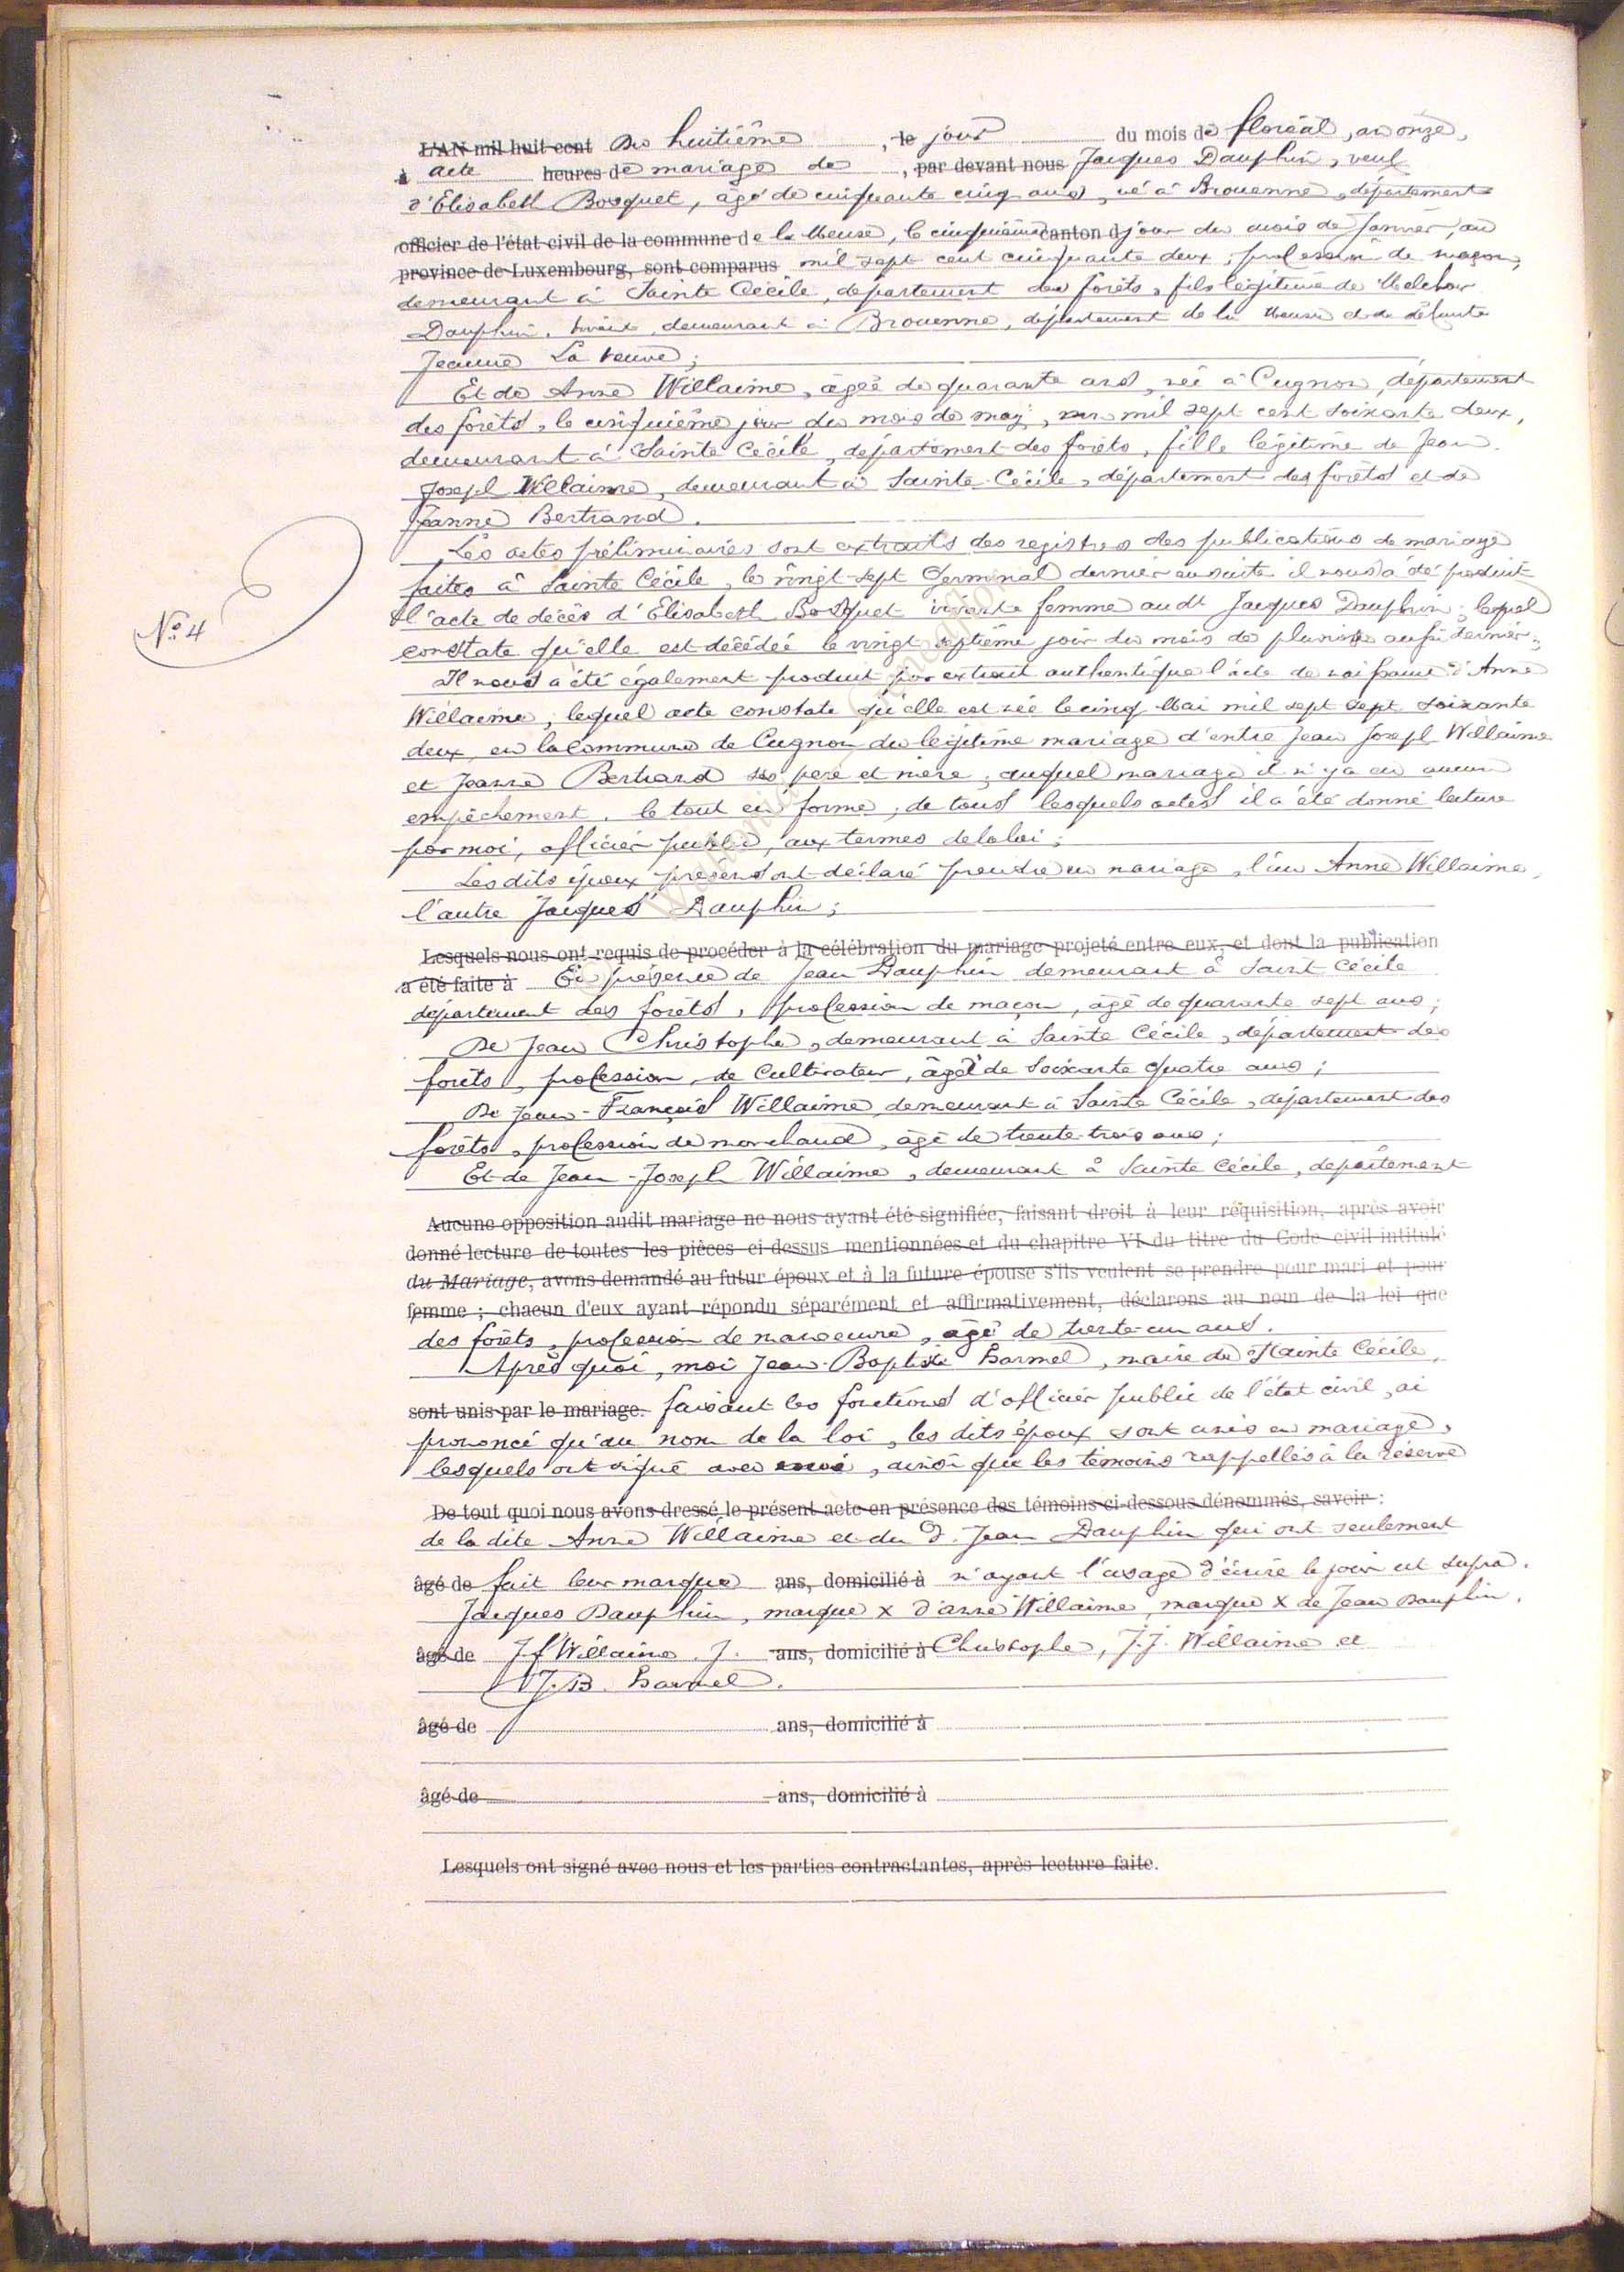 L'AN mil huit cent Du huitième , le jour du mois de floréal, an onze,
à acte heures de mariage de , par devant nous Jacques Dauphin, veuf
d'Elisabeth Bosquet, âgé de cinquante cinq ans, né à Brouenne, département
officier de l'état civil de la commune de la Meuse, le cinquième canton d jour du mois de Janvier, an
province de Luxembourg, sont comparus mil sept cent cinquante deux, profession de maçon,
demeurant à Sainte Cécile, département des forêts, fils légitime de Melchior
Dauphin, vivant, demeurant à Brouenne, département de la Meuse et de défunte
Jeanne La veuve;
Et de Anne Willaime, âgée de quarante ans, née à Cugnon, département
des forêts, le cinquième jour du mois de may, mil sept cent soixante deux,
demeurant à Sainte Cécile, département des forêts, fille légitime de Jean
Joseph Willaime, demeurant à Sainte-Cécile, département des forêts et de
Jeanne Bertrand.
Les actes préliminaires sont extraits des registres des publications de mariage
faites à Sainte Cécile, le vingt-sept Germinal dernier ensuite il nous a été produit
l'acte de décès d'Elisabeth Bosquet vivante femme audt Jacques Dauphin; lequel
constate qu'elle est décédée le vingt septième jour du mois de pluviose aussi dernier;
Il nous a été également produit par extrait authentique l'acte de naissance d'Anne
Willaime, lequel acte constate qu'elle est née le cinq Mai mil sept sept soixante
deux, en la commune de Cugnon du légitime mariage d'entre Jean Joseph Willaime
et Jeanne Bertrand ses père et mère, auquel mariage il n'y a eu aucun
empêchement. le tout en forme; de tous lesquels actes il a été donné lecture
par moi, officier public, aux termes de la loi;
Les dits époux présens ont déclaré prendre en mariage, l'un Anne Willaime,
l'autre Jacques Dauphin;
Lesquels nous ont requis de procéder à la célébration du mariage projeté entre eux, et dont la publication
a été faite à En présence de Jean Dauphin demeurant à Saint Cécile
département des forêts, profession de maçon, âgé de quarante sept ans;
De Jean Christophe, demeurant à Sainte Cécile, département des
forêts, profession de Cultivateur, âgé de soixante quatre ans;
De Jean-François Willaime demeurant à Sainte Cécile, département des
forêts, profession de marchand, âgé de trente-trois ans;
Et de Jean-Joseph Willaime, demeurant à Sainte Cécile, département
Aucune opposition audit mariage ne nous ayant été signifiée, faisant droit à leur réquisition, après avoir
donné lecture de toutes les pièces ci-dessus mentionnées et du chapitre VI du titre du Code civil intitulé
du Mariage, avons demandé au futur époux et à la future épouse s'ils veulent se prendre pour mari et pour
femme ; chacun d'eux ayant répondu séparément et affirmativement, déclarons au nom de la loi que
des forêts, profession de manoeuvre, âgé de trente-un ans.
Après quoi, moi Jean-Baptiste Harmel, maire de Sainte Cécile,
sont unis par le mariage. faisant les fonctions d'officier public de l'état civil, ai
prononcé qu'au nom de la loi, les dits époux sont unis en mariage,
lesquels ont signé avec moi, ainsi que les témoins rappellés à la réserve
De tout quoi nous avons dressé le présent acte en présence des témoins ci-dessous dénommés, savoir :
de la dite Anne Willaime et du d. Jean Dauphin qui ont seulement
âgé de fait leur marque ans, domicilié à n'ayant l'usage d'écrire le jour ut supra.
Jacques Dauphin, marque x d'anne Willaime, marque x de Jean Dauphin,
âgé de J f Willaime. J. ans, domicilié à Christophe, J. J. Willaime et
J. B. Harmel.
âgé de ans, domicilié à
âgé de ans, domicilié à
Lesquels ont signé avec nous et les parties contractantes, après lecture faite.
N° 4